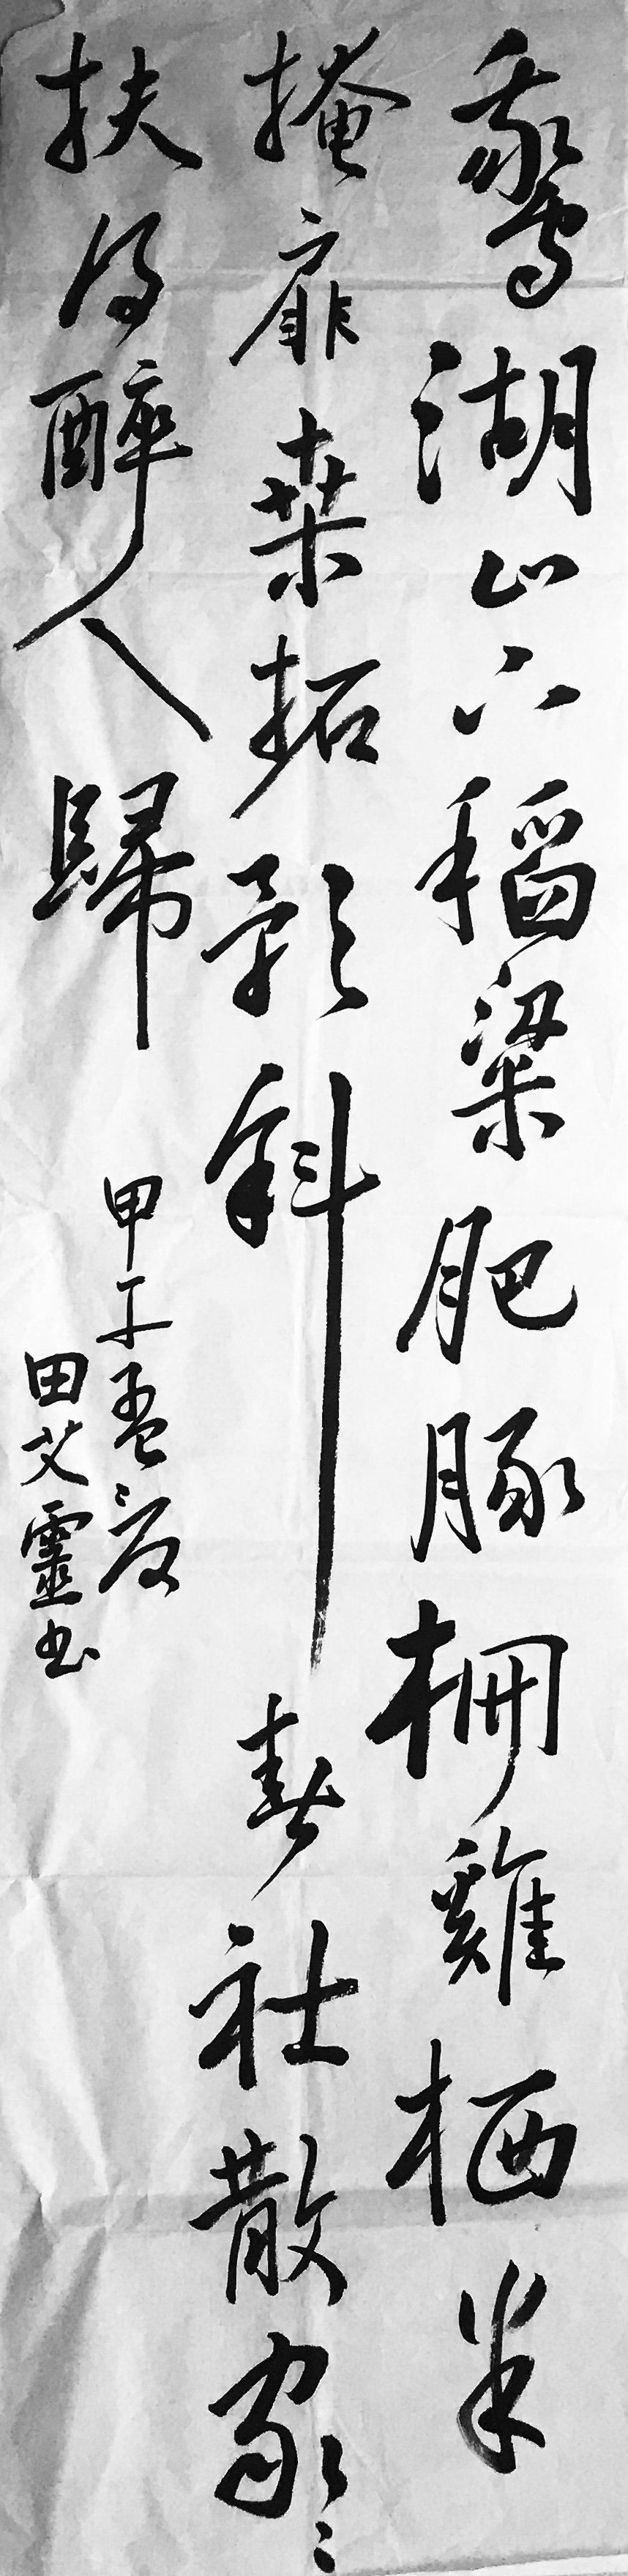 鵞湖山下稻粱肥豚柵雞栖半
掩扉桒拓影斜春社散家〻
扶得醉人歸
甲子孟夏
田艾靈书